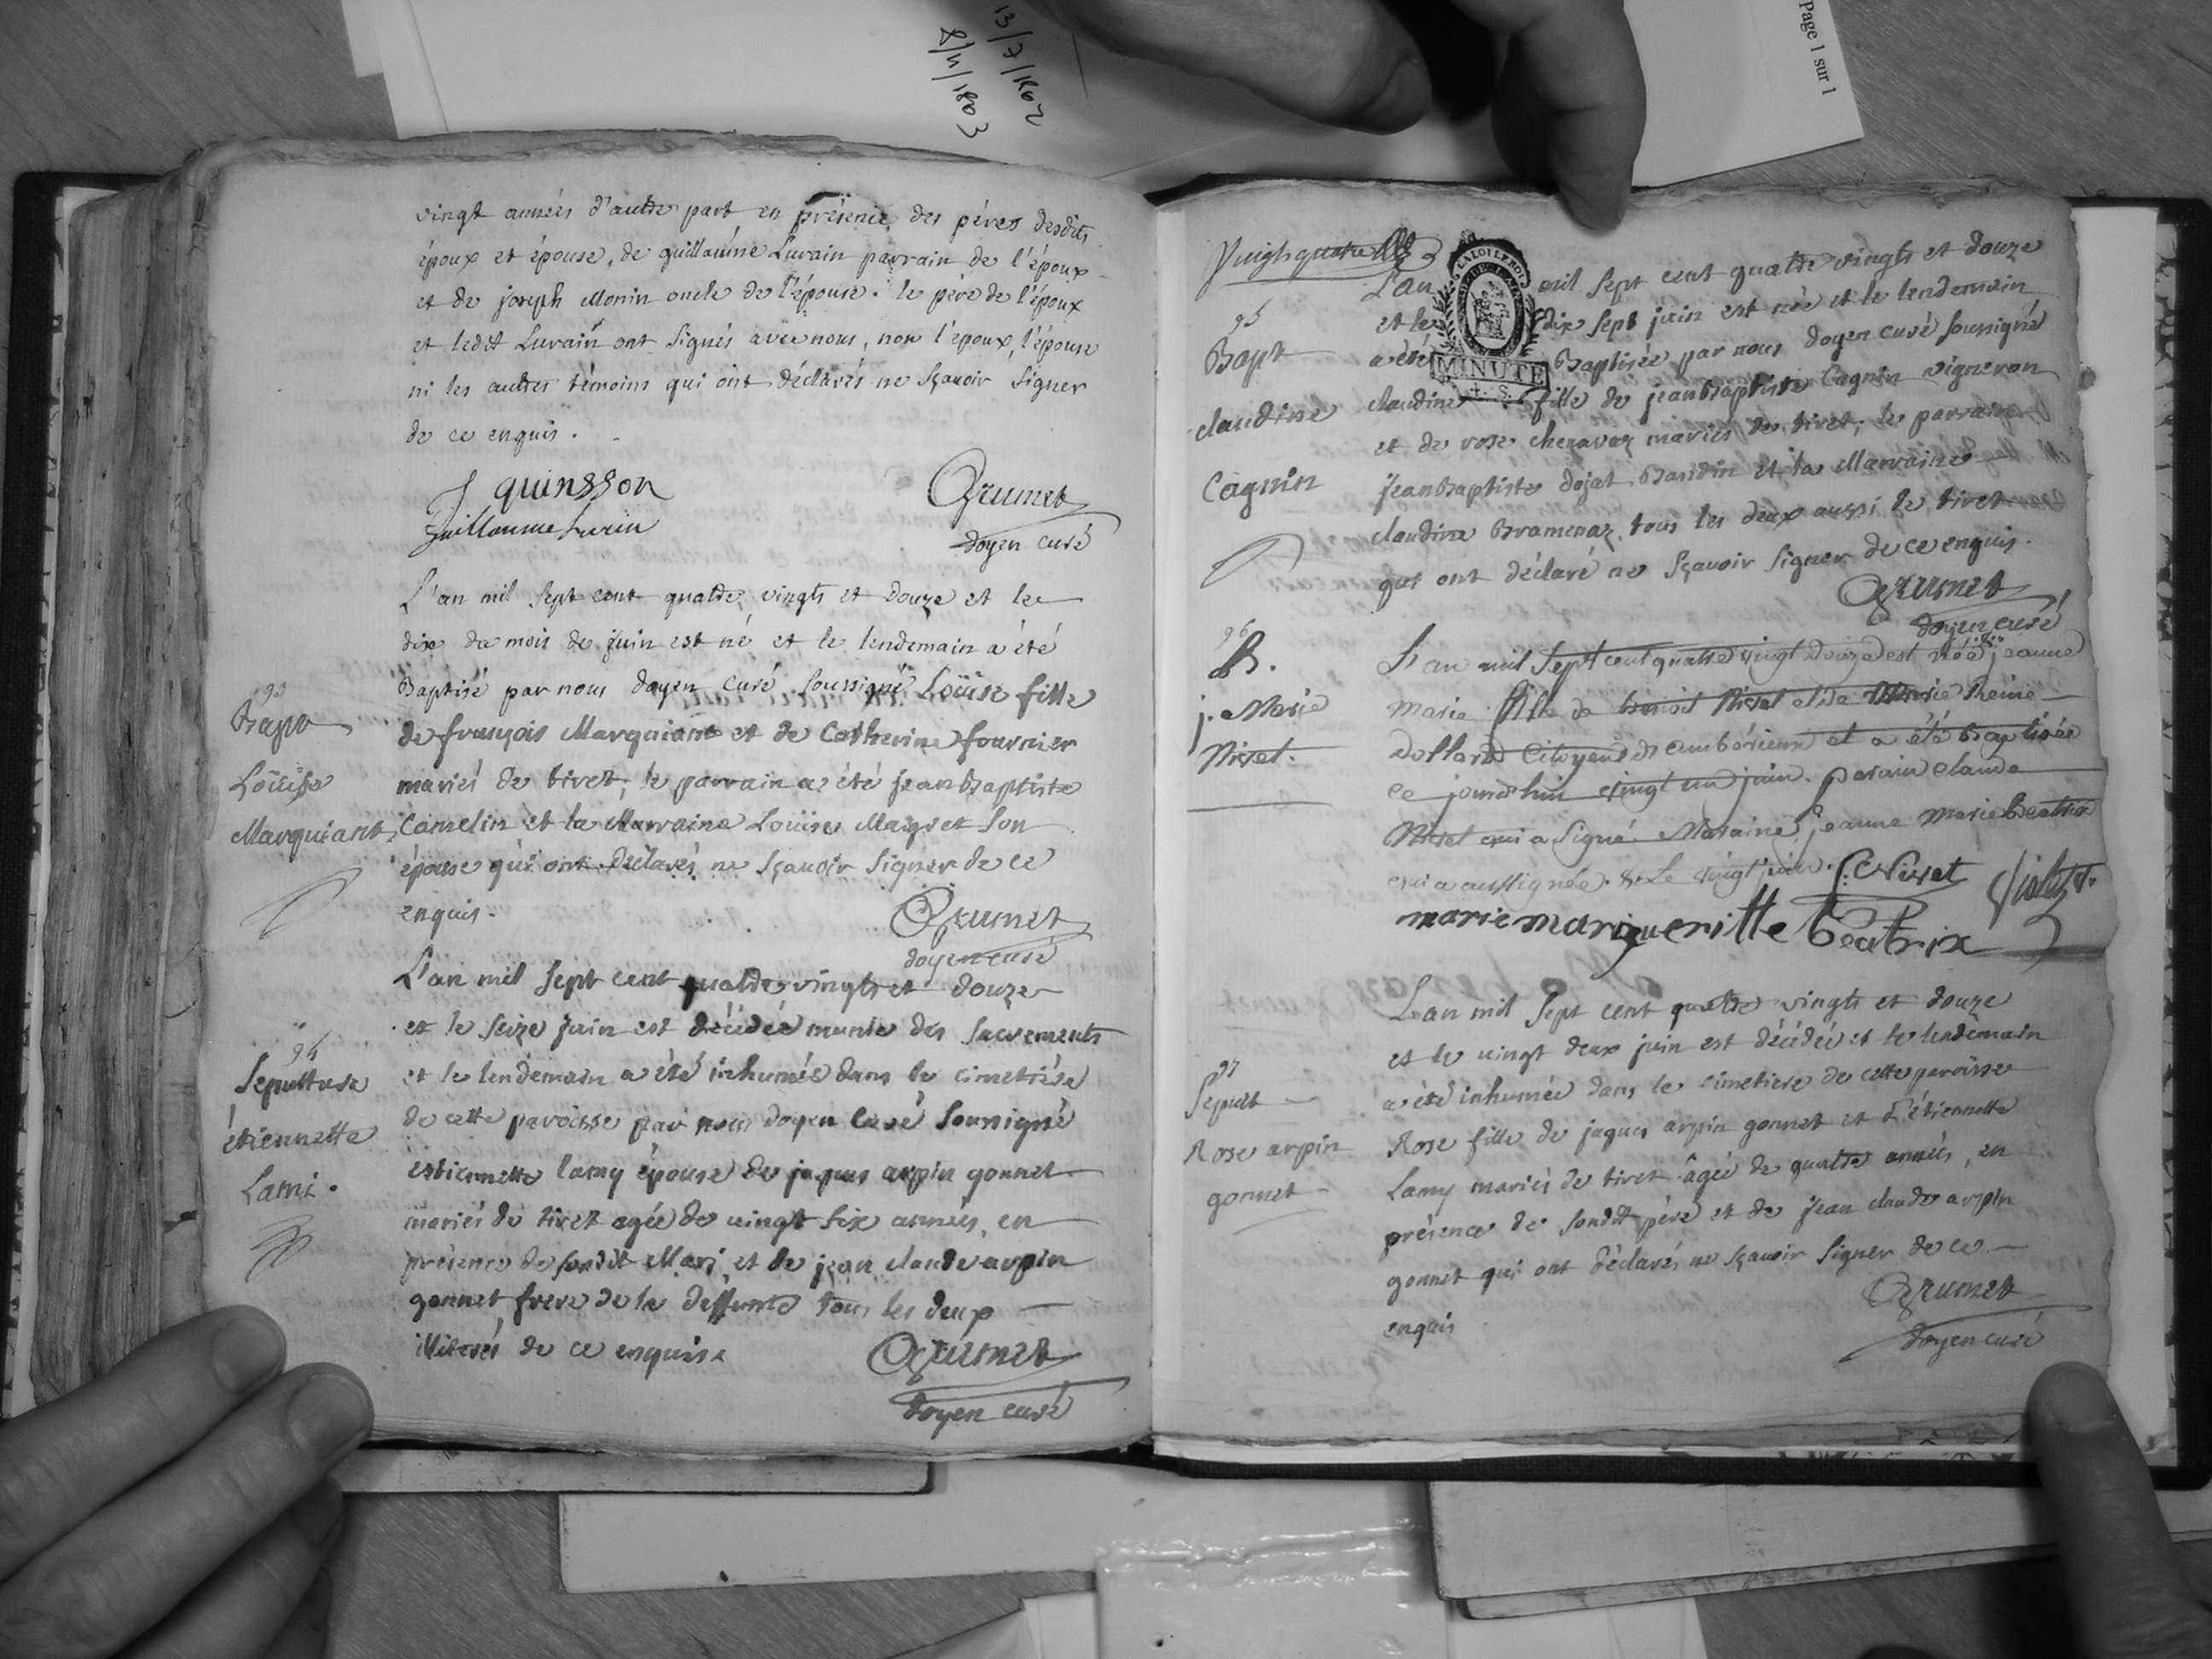 13/7/1802
8/4/1803
Page 1 sur 1
vingt années d'autre part en présence des péres desdits
époux et épouse, de guillaume Lurain parrain de l'époux
et de joseph Monin oncle de l'épouse. le père de l'époux
et ledit Lurain ont signés avec nous, non l'époux, l'épouse
ni les autres témoins qui ont déclarés ne sçavoir signer
de ce enquis.
J quinsson
Guillaume Lurin
Grumet
doyen curé
L'an mil sept cent quatre vingts et douze et le
dix du mois de juin est né et le lendemain a été
Baptisé par nous doyen curé soussigné Loüise fille
de françois Marquiant et de Catherine fournier
mariés de tiret; le parrain a été jean Baptiste
Camelin et la Marraine Loüise Maigret son
épouse qui ont déclarés ne sçavoir signer de ce
enquis.
93
Bapt
Loüise
Marquiant
Grumet
doyen curé
L'an mil sept cent quatre vingts et douze
et le seize juin est décédée munie des sacrements
et le lendemain a été inhumée dans le cimetière
de cette paroisse par nous doyen curé soussigné
estiennette lamy épouse de jaques arpin gonnet
mariés de tiret agée de vingt six années, en
présence de sondit Mari et de jean claude arpin
gonnet frere de la deffunte tous les deux
illiterés de ce enquis.
94
Sepulture
étiennette
Lami.
Grumet
doyen curé
Vingt quatre
L'an mil sept cent quatre vingts et douze
et le dix sept juin est née et le lendemain
a été Baptisée par nous doyen curé soussigné
claudine fille de jean Baptiste Cagnin vigneron
et de rose chenavaz mariés de tiret; le parrain
jean Baptiste dojat Baudin et la Marraine
claudine Bramenaz tous les deux aussi de tiret
qui ont déclaré ne sçavoir signer de ce enquis.
LA LOI LE ROI
MINUTE
95
Bapt
claudine
Cagnin
Grumet
doyen curé
96
B.
j. Marie
Nivet.
L'an mil sept cent quatre vingt douze est née jeanne
marie fille de benoit Nivet et de Marie Reine
Dollard Citoyens d'ambérieux et a été baptisée
ce jourdhui vingt un juin. parain claude
Nivet qui a signé. Maraine jeanne marie beatrix
qui a aussi signée. Le vingt juin. C. Nivet
Violet v.
marie margueritte beatrix
L'an mil sept cent quatre vingts et douze
et le vingt deux juin est décédée et le lendemain
a été inhumée dans le cimetiere de cette paroisse
Rose fille de jaques arpin gonnet et d'étiennette
Lamy mariés de tiret âgée de quatre années, en
présence de sondit père et de jean claude arpin
gonnet qui ont déclarés ne sçavoir signer de ce
enquis
97
Sepult
Rose arpin
gonnet
Grumet
doyen curé